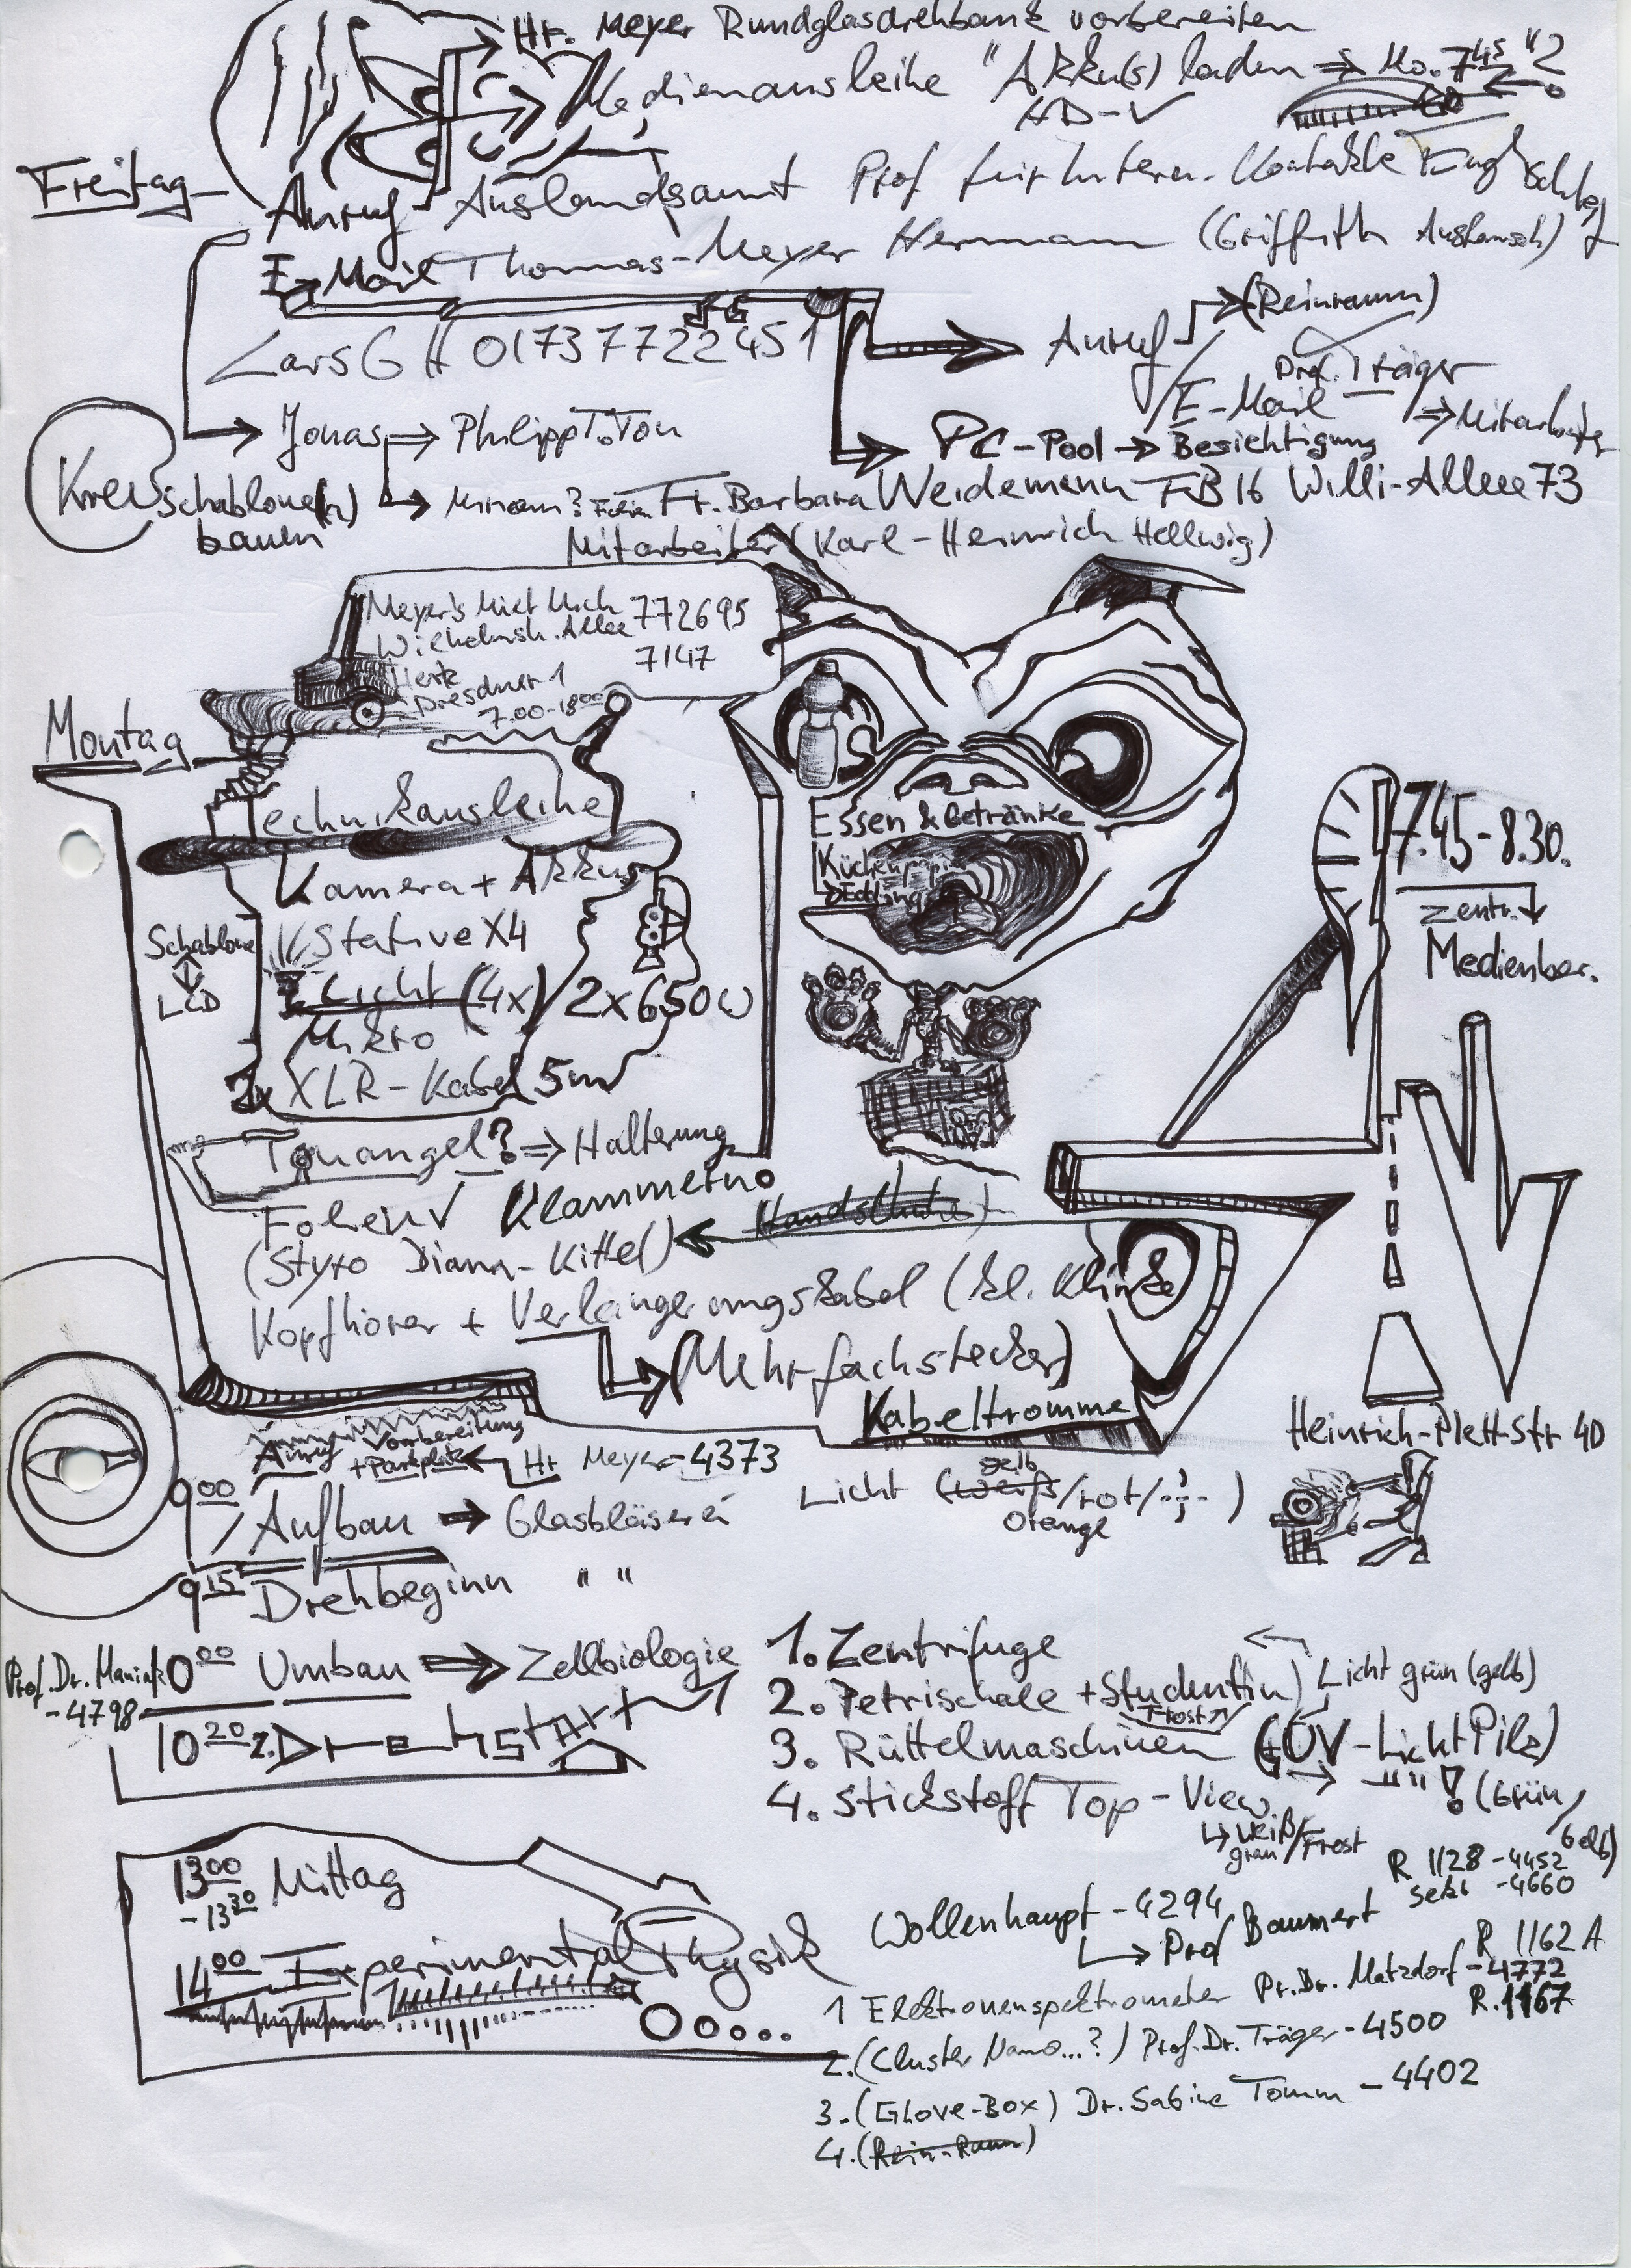 Hr. Meyer Rundglasdrehbank vorbereiten
Medienausleihe "Akku(s) laden ⇒ Mo. 7⁴⁵"
HD-V
Freitag
Anruf - Auslandsamt Prof für Intern. Kontakte
E-Mail Thomas-Meyer Hermann (Griffith Austausch)
Lars G H 01737722451
Anruf (Reinraum)
Prof. Träger
E-Mail ⇒ Mitarbeiter
Jonas ⇒ Philipp T. Ton
PC-Pool → Besichtigung
Kreuzschablone(n)
bauen
Miriam? Folien Fr. Barbara Weidemann FB 16 Willi-Allee 73
Mitarbeiter (Karl-Heinrich Hellwig)
Meyer's Miet Mich 772695
Wilhelmsh. Allee
7147
Herk
Dresdner 1
7.00-18⁰⁰
Montag
Technikausleihe
Kamera + Akkus
Stative X4
Schablone
LCD
Licht (4x) / 2x650W
Mikro
2x XLR-Kabel 5m
Tonangel? ⇒ Halterung
Folien √ Klammern
Handschuhe
(Styro Diana-Kittel)
Kopfhörer + Verlängerungskabel (kl. Klinke)
Mehrfachstecker)
Kabeltrommel
Essen & Getränke
Küchenpapier
Edding
7.45-8.30.
Zentr.
Medienber.
Heinrich-Plett-Str 40
Anruf Vorbereitung
+ Parkplatz Hr Meyer-4373
Licht (weiß/rot/...)
gelb
Orange
9⁰⁰ Aufbau → Glasbläserei
9¹⁵ Drehbeginn " "
Prof. Dr. Maniak
-4798
10⁰⁰ Umbau → Zellbiologie
10²⁰ Drehstart
1. Zentrifuge
2. Petrischale + Studentin) Licht grün (gelb)
Frost
3. Rüttelmaschinen (+ÜV-Licht Pilz)
4. Stickstoff Top-View -"" ! (Grün/
Gelb)
weiß/Frost
grün
13⁰⁰
-13³⁰ Mittag
14⁰⁰ Experimental Physik
Wollenhaupt -4294
Prof Baumert
R 1128 -4452
Sekr -4660
1 Elektronenspektrometer Pr. Dr. Matzdorf -4772
R 1162 A
R. 1167
2. (Cluster Nano...?) Prof. Dr. Träger -4500
3. (Glove-Box) Dr. Sabine Tomm -4402
4. (Rein-Raum)